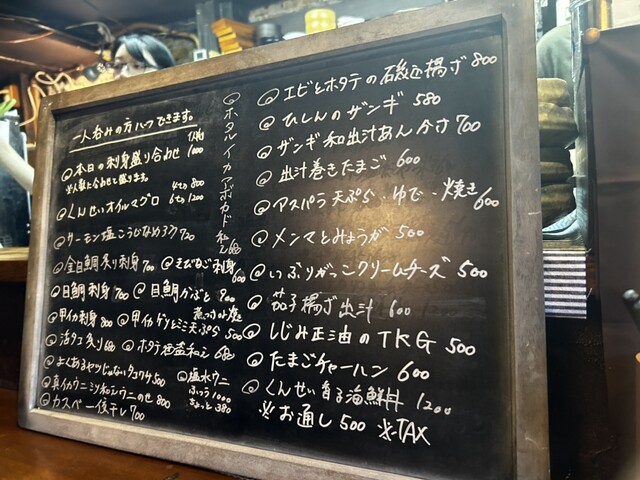 一人呑みの方ハーフできます。
@本日の刺身盛り合わせ 1人前 1000
※人数に合わせて盛ります。
@くんせいオイルマグロ 4ケ 800
6ケ 1200
@サーモン塩こうじなめろう 720
@金目鯛炙り刺身 900 @きびなご刺身 600
@目鯛刺身 700 @目鯛かぶと 900
煮つけor焼
@甲イカ刺身 800 @甲イカゲソどミミ天ぷら 500
@活タコ炙り 680 @ホタテ 和え 680
@よくあるヤツじゃないタコワサ 500
@塩水ウニ
ふつう 1000
ちょっと 380
@真イカウニミソ和え ウニのせ 800
@カスベ一夜干し 700
@ホタルイカアボカド和え 680
@エビとホタテの磯辺揚げ 800
@ひしんのザンギ 580
@ザンギ和出汁あんかけ 700
@出汁巻きたまご 600
@アスパラ天ぷら・ゆで・焼き 600
@メンマとみょうが 500
@いぶりがっこクリームチーズ 500
@茄子揚げ出汁 600
@しじみ正油のTKG 500
@たまごチャーハン 600
@くんせい香る海鮮丼 1200
※お通し 500 ※TAX